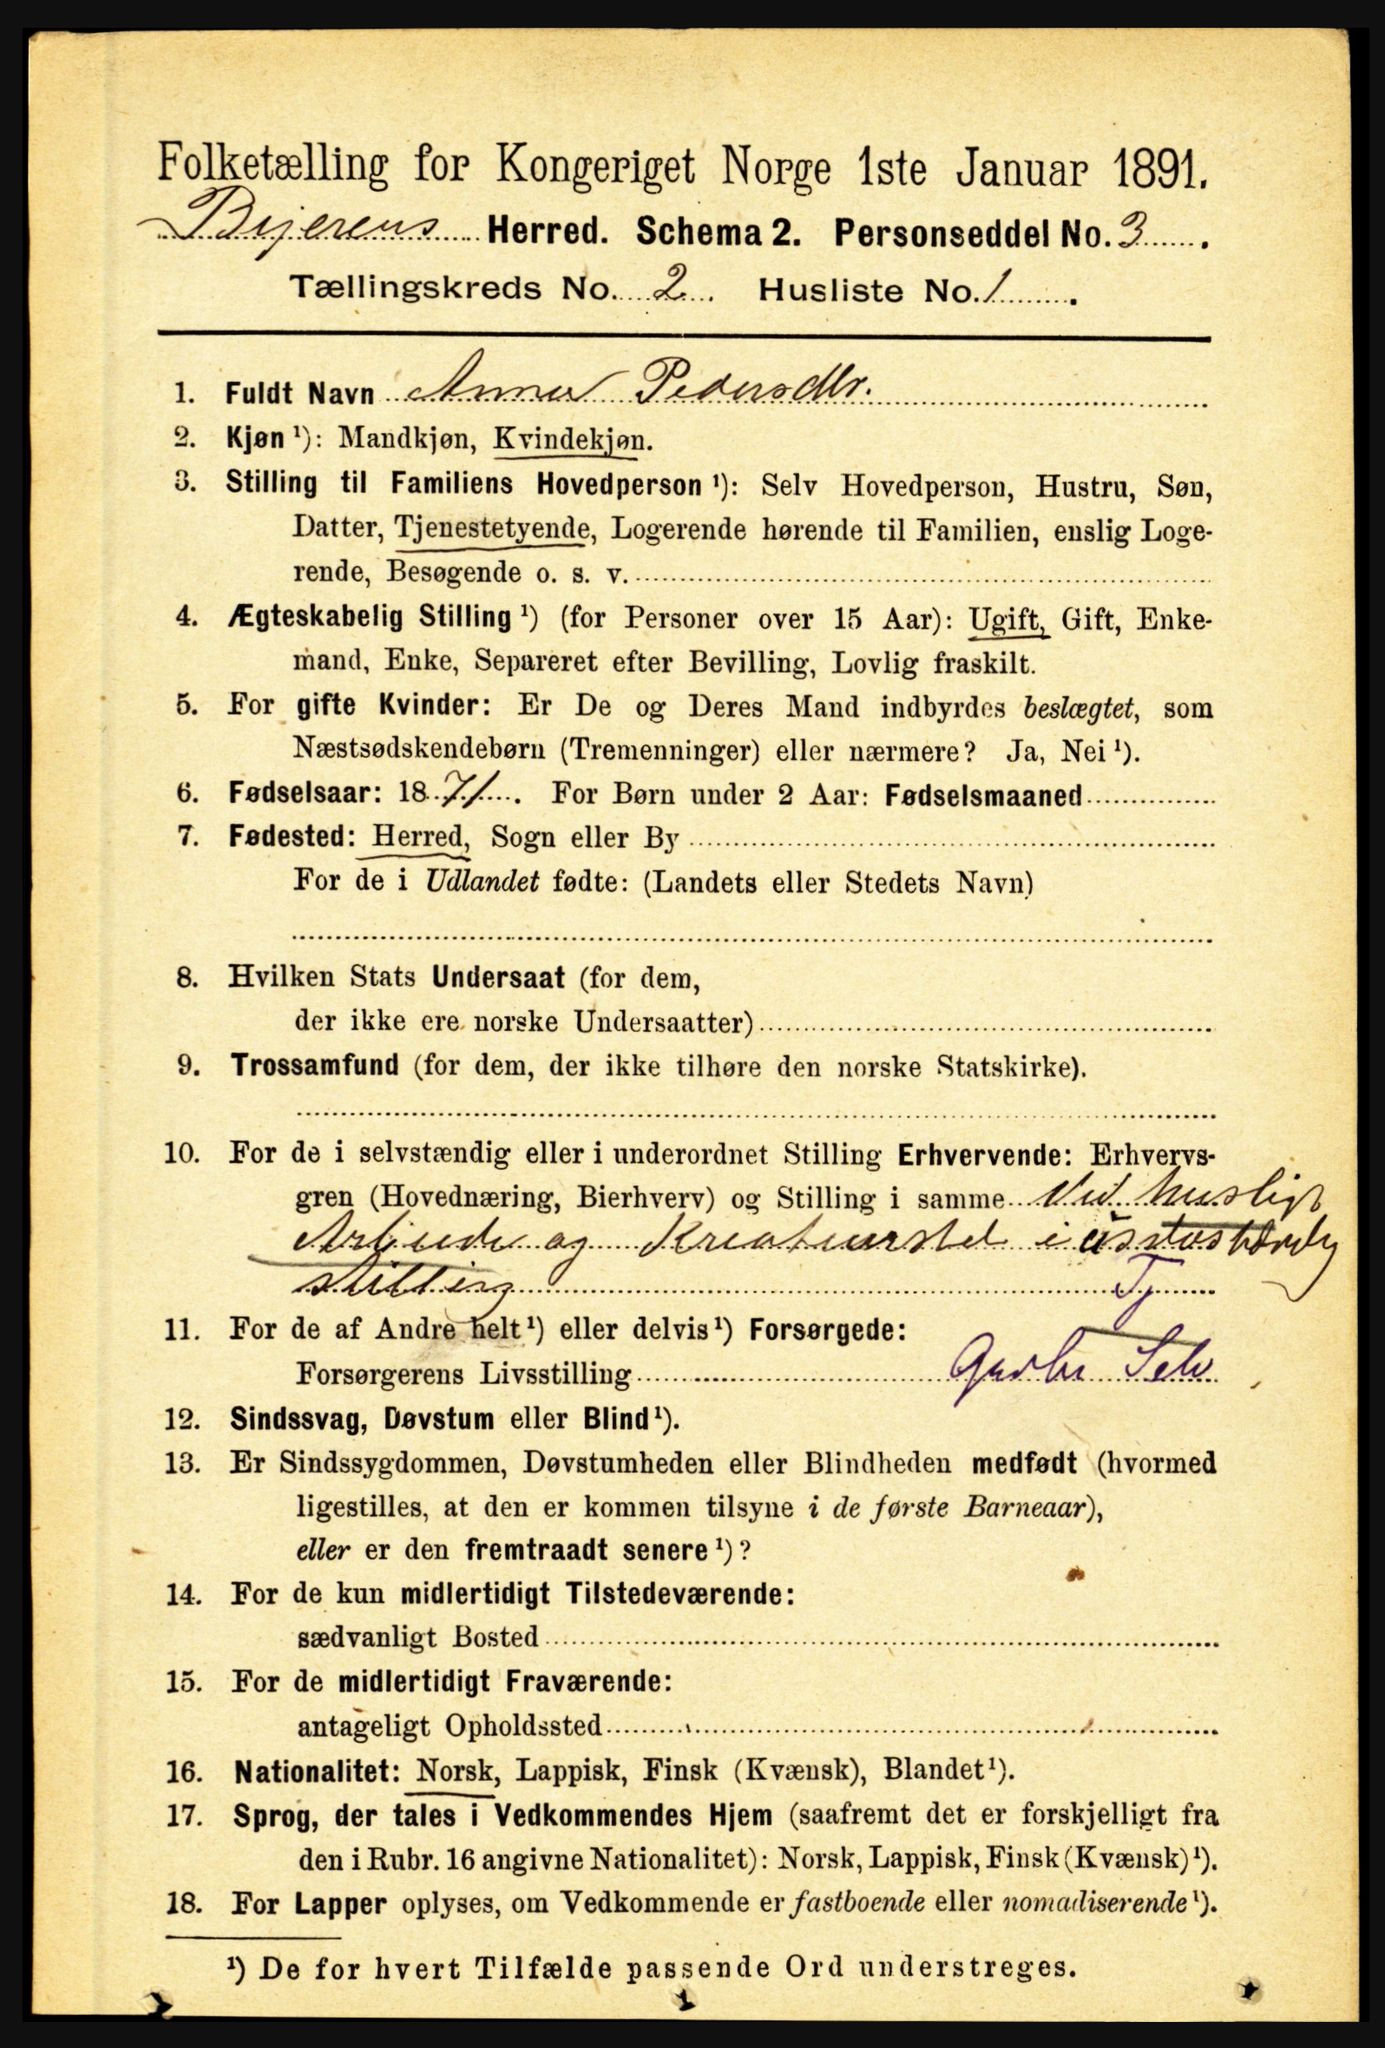 Folketælling for Kongeriget Norge 1ste Januar 1891.
Bejerens Herred. Schema 2. Personseddel No. 3.
Tællingskreds No. 2. Husliste No. 1.
1. Fuldt Navn Anna Pedersdtr.
2. Kjøn ¹): Mandkjøn, Kvindekjøn.
3. Stilling til Familiens Hovedperson ¹): Selv Hovedperson, Hustru, Søn,
Datter, Tjenestetyende, Logerende hørende til Familien, enslig Loge-
rende, Besøgende o. s. v.
4. Ægteskabelig Stilling ¹) (for Personer over 15 Aar): Ugift, Gift, Enke-
mand, Enke, Separeret efter Bevilling, Lovlig fraskilt.
5. For gifte Kvinder: Er De og Deres Mand indbyrdes beslægtet, som
Næstsødskendebørn (Tremenninger) eller nærmere? Ja, Nei ¹).
6. Fødselsaar: 1871. For Børn under 2 Aar: Fødselsmaaned
7. Fødested: Herred, Sogn eller By
For de i Udlandet fødte: (Landets eller Stedets Navn)
8. Hvilken Stats Undersaat (for dem,
der ikke ere norske Undersaatter)
9. Trossamfund (for dem, der ikke tilhøre den norske Statskirke).
10. For de i selvstændig eller i underordnet Stilling Erhvervende: Erhvervs-
gren (Hovednæring, Bierhverv) og Stilling i samme Ved husligt
Arbeide og Kreaturstel i
stilling Tj
11. For de af Andre helt ¹) eller delvis ¹) Forsørgede:
Forsørgerens Livsstilling Gaardbr Selv
12. Sindssvag, Døvstum eller Blind ¹).
13. Er Sindssygdommen, Døvstumheden eller Blindheden medfødt (hvormed
ligestilles, at den er kommen tilsyne i de første Barneaar),
eller er den fremtraadt senere ¹)?
14. For de kun midlertidigt Tilstedeværende:
sædvanligt Bosted
15. For de midlertidigt Fraværende:
antageligt Opholdssted
16. Nationalitet: Norsk, Lappisk, Finsk (Kvænsk), Blandet ¹).
17. Sprog, der tales i Vedkommendes Hjem (saafremt det er forskjelligt fra
den i Rubr. 16 angivne Nationalitet): Norsk, Lappisk, Finsk (Kvænsk) ¹).
18. For Lapper oplyses, om Vedkommende er fastboende eller nomadiserende ¹).
¹) De for hvert Tilfælde passende Ord understreges.